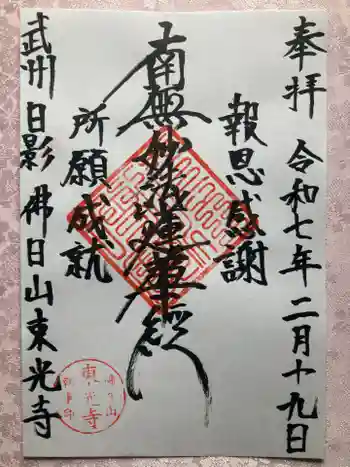 奉拝 令和七年二月十九日
報恩感謝
南無妙法蓮華経
所願成就
武州日影佛日山東光寺
東光寺